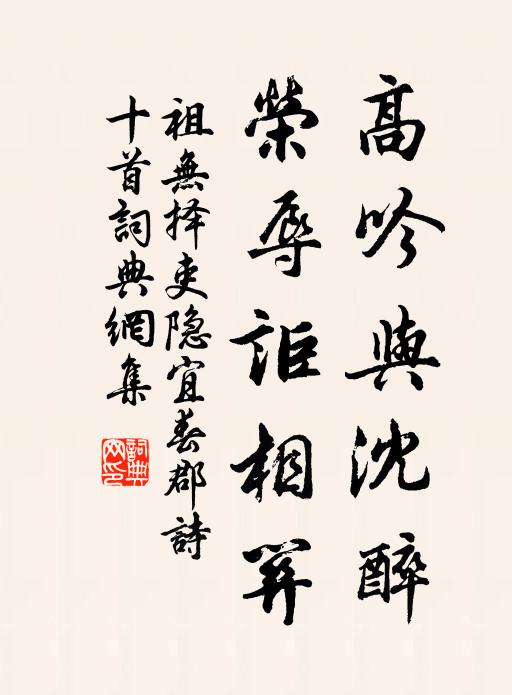 高吟與沈醉
榮辱詎相關
祖無择吏隐宜春郡詩
十首詞典網集
詞典
网印